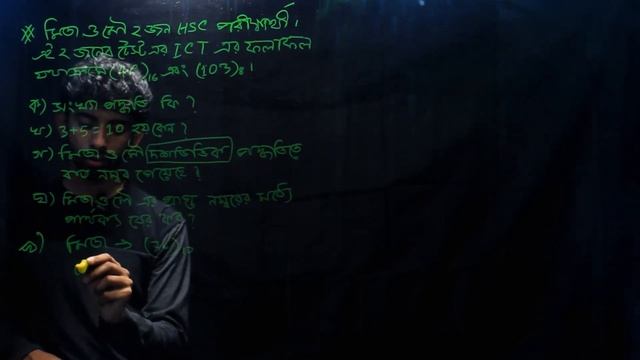 ※ মিতা ও মৌ ২ জন HSC পরীক্ষার্থী।
এই ২ জনের টেস্ট এর ICT এর ফলাফল
যথাক্রমে ( )₁₆ এবং (103)₈।
ক) সংখ্যা পদ্ধতি কি?
খ) 3+5=10 হয় কেন?
গ) মিতা ও মৌ দশভিত্তিক পদ্ধতিতে
কত নম্বর পেয়েছে?
ঘ) মিতা ও মৌ এর প্রাপ্ত নম্বরের মধ্যে
পার্থক্য বের কর?
মিতা →